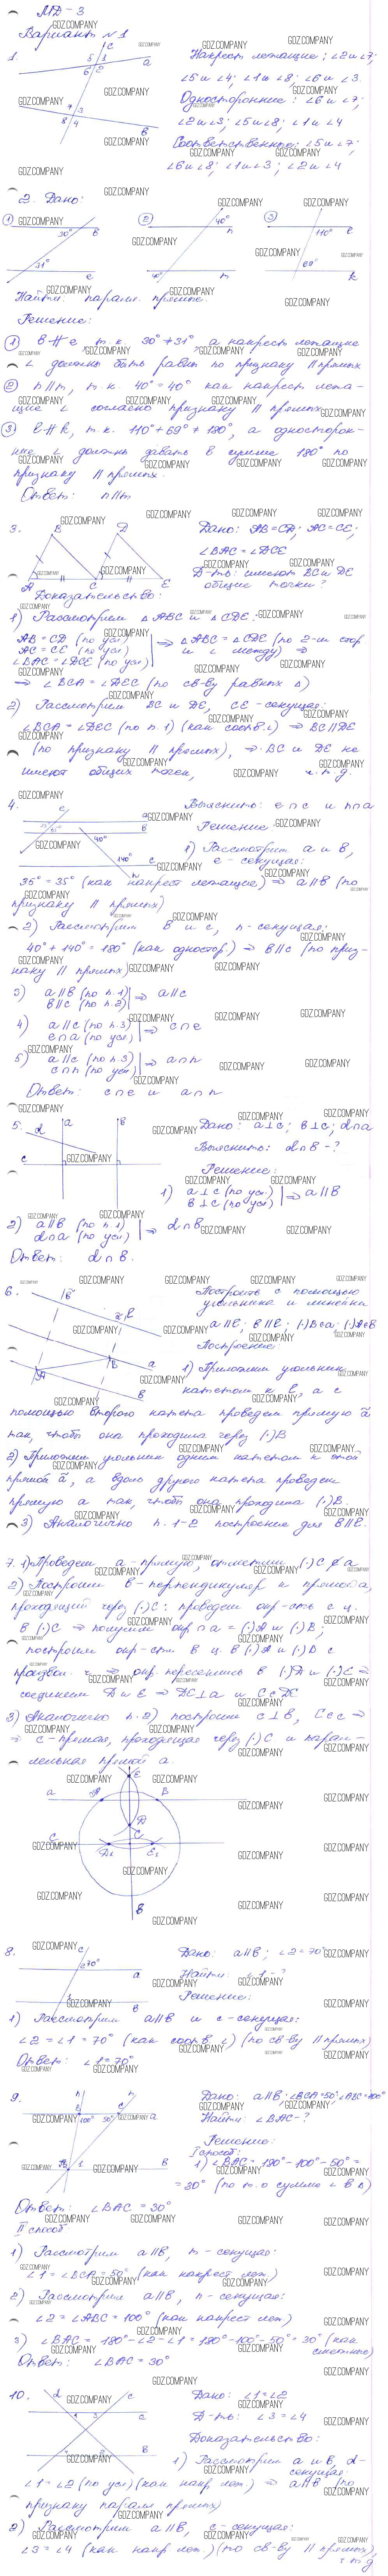 МД-3
Вариант №1
1.
Накрест лежащие: ∠2 и 7;
∠5 и 4; ∠1 и 8; ∠6 и 3.
Односторонние: ∠6 и 7;
∠2 и 3; ∠5 и 8; ∠1 и 4
Соответственные: ∠5 и 7;
∠6 и 8; ∠1 и 3; ∠2 и 4
2. Дано:
Найти: паралл. прямые.
Решение:
① в ∦ е, т.к. 30° ≠ 31°, а накрест лежащие
∠ должны быть равны по признаку || прямых
② n || m, т.к. 40° = 40° как накрест лежа-
щие ∠ согласно признаку || прямых
③ ℓ ∦ k, т.к. 110° + 69° ≠ 180°, а односторон-
ние ∠ должны давать в сумме 180° по
признаку || прямых.
Ответ: n || m
3. Дано: AB = CD; AC = CE;
∠BAC = ∠DCE
Д-ть: имеют BC и DE
общие точки?
Доказательство:
1) Рассмотрим △ABC и △CDE:
AB = CD (по усл)
AC = CE (по усл)
∠BAC = ∠DCE (по усл)
⇒ △ABC = △CDE (по 2-м стор
и ∠ между) ⇒
⇒ ∠BCA = ∠DEC (по св-ву равных △)
2) Рассмотрим BC и DE, CE - секущая:
∠BCA = ∠DEC (по п.1) (как соотв. ∠) ⇒ BC || DE
(по признаку || прямых), ⇒ BC и DE не
имеют общих точек, ч.т.д.
4. Выяснить: e ∩ c и n ∩ a
Решение:
1) Рассмотрим a и b,
e - секущая:
35° = 35° (как накрест лежащие) ⇒ a || b (по
признаку || прямых)
2) Рассмотрим b и c, n - секущая:
40° + 140° = 180° (как одностор.) ⇒ b || c (по приз-
наку || прямых)
3) a || b (по п.1)
b || c (по п.2) ⇒ a || c
4) a || c (по п.3)
e ∩ a (по усл) ⇒ c ∩ e
5) a || c (по п.3)
c ∩ n (по усл) ⇒ a ∩ n
Ответ: c ∩ e и a ∩ n
5. Дано: a ⊥ c; b ⊥ c; d ∩ a
Выяснить: d ∩ b - ?
Решение:
1) a ⊥ c (по усл)
b ⊥ c (по усл) ⇒ a || b
2) a || b (по п.1)
d ∩ a (по усл) ⇒ d ∩ b
Ответ: d ∩ b.
6. Построить с помощью
угольника и линейки
Построение:
1) Приложим угольник
катетом к ℓ, а с
помощью второго катета проведем прямую ã
так, чтоб она проходила через (·)B
2) Приложим угольник одним катетом к этой
прямой ã, а вдоль другого катета проведем
прямую a так, чтоб она проходила (·)B.
3) Аналогично п. 1-2 построение для b || ℓ.
7. 1) Проведем a - прямую, отметим (·)C ∉ a
2) Построим b - перпендикуляр к прямой a,
проходящий через (·)C: проведем окр-сть с ц.
в (·)C ⇒ получим окр ∩ a = (·)A и (·)B;
соединим D и E ⇒ DE ⊥ a и C ∈ DE
3) Аналогично п. 2) построим c ⊥ b, C ∈ c ⇒
⇒ c - прямая, проходящая через (·)C и парал-
лельная прямой a.
8. Дано: a || b; ∠2 = 70°
Найти: ∠1 - ?
Решение:
1) Рассмотрим a || b и c - секущая:
∠2 = ∠1 = 70° (как соотв. ∠) (по св-ву || прямых)
Ответ: ∠1 = 70°
9. Дано: a || b; ∠BCA = 50°; ∠ABC = 100°
Найти: ∠BAC - ?
Решение:
I способ:
1) ∠BAC = 180° - 100° - 50° =
= 30° (по т. о сумме ∠ в △)
Ответ: ∠BAC = 30°
II способ
1) Рассмотрим a || b, m - секущая:
∠1 = ∠BCA = 50° (как накрест леж.)
2) Рассмотрим a || b, n - секущая:
∠2 = ∠ABC = 100° (как накрест леж.)
3) ∠BAC = 180° - ∠2 - ∠1 = 180° - 100° - 50° = 30° (как
смежные)
Ответ: ∠BAC = 30°
10. Дано: ∠1 = ∠2
Д-ть: ∠3 = ∠4
Доказательство:
1) Рассмотрим a и b, d -
секущая:
∠1 = ∠2 (по усл) (как накр. леж.) ⇒ a || b (по
признаку паралл прямых)
2) Рассмотрим a || b, c - секущая:
∠3 = ∠4 (как накр леж.) (по св-ву || прямых),
ч.т.д